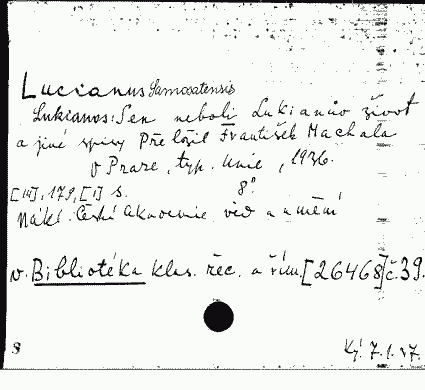 Lucianus Samosatensis
Lukianos: Sen neboli Lukianův život
a jiné spisy Přeložil František Machala
v Praze, typ. Unie, 1936.
[III], 179, [1] s. 8°
Nákl. České Akademie věd a umění
v. Bibliotéka klas. řec. a řím. [26468] č. 39.
S Ký. 7.1.37.